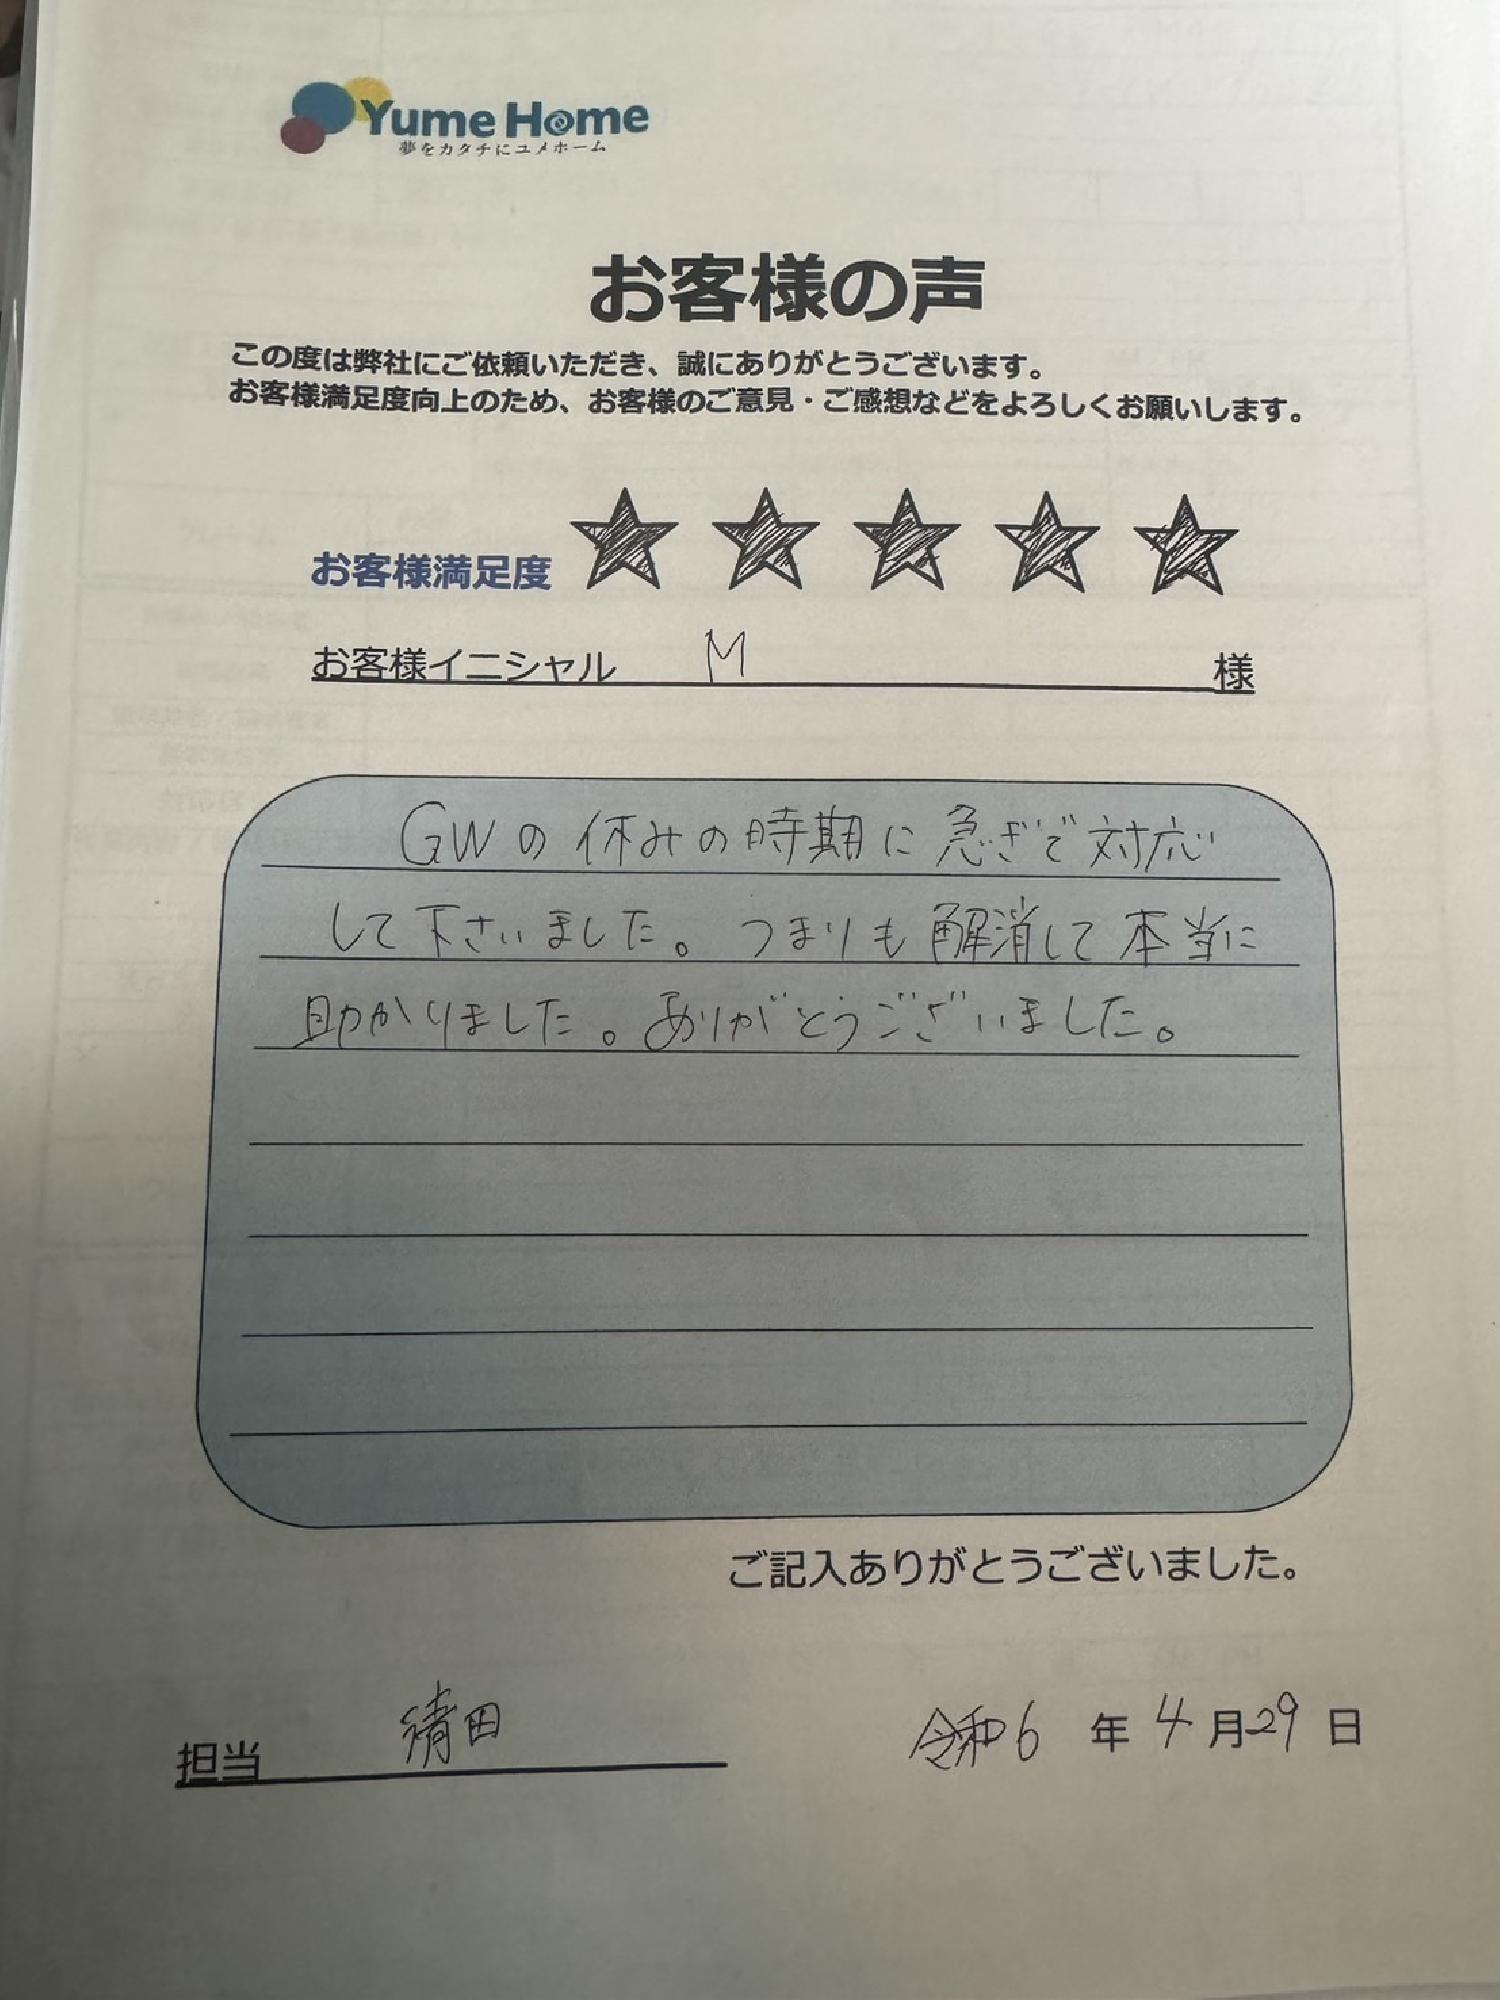 Yume Home
夢をカタチにユメホーム
お客様の声
この度は弊社にご依頼いただき、誠にありがとうございます。
お客様満足度向上のため、お客様のご意見・ご感想などをよろしくお願いします。
お客様満足度 ★★★★★
お客様イニシャル M 様
GWの休みの時期に急ぎで対応
して下さいました。つまりも解消して本当に
助かりました。ありがとうございました。
ご記入ありがとうございました。
担当 清田
令和6年4月29日